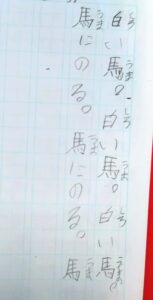 白い馬。白い馬。白い馬。
馬にのる。馬にのる。馬